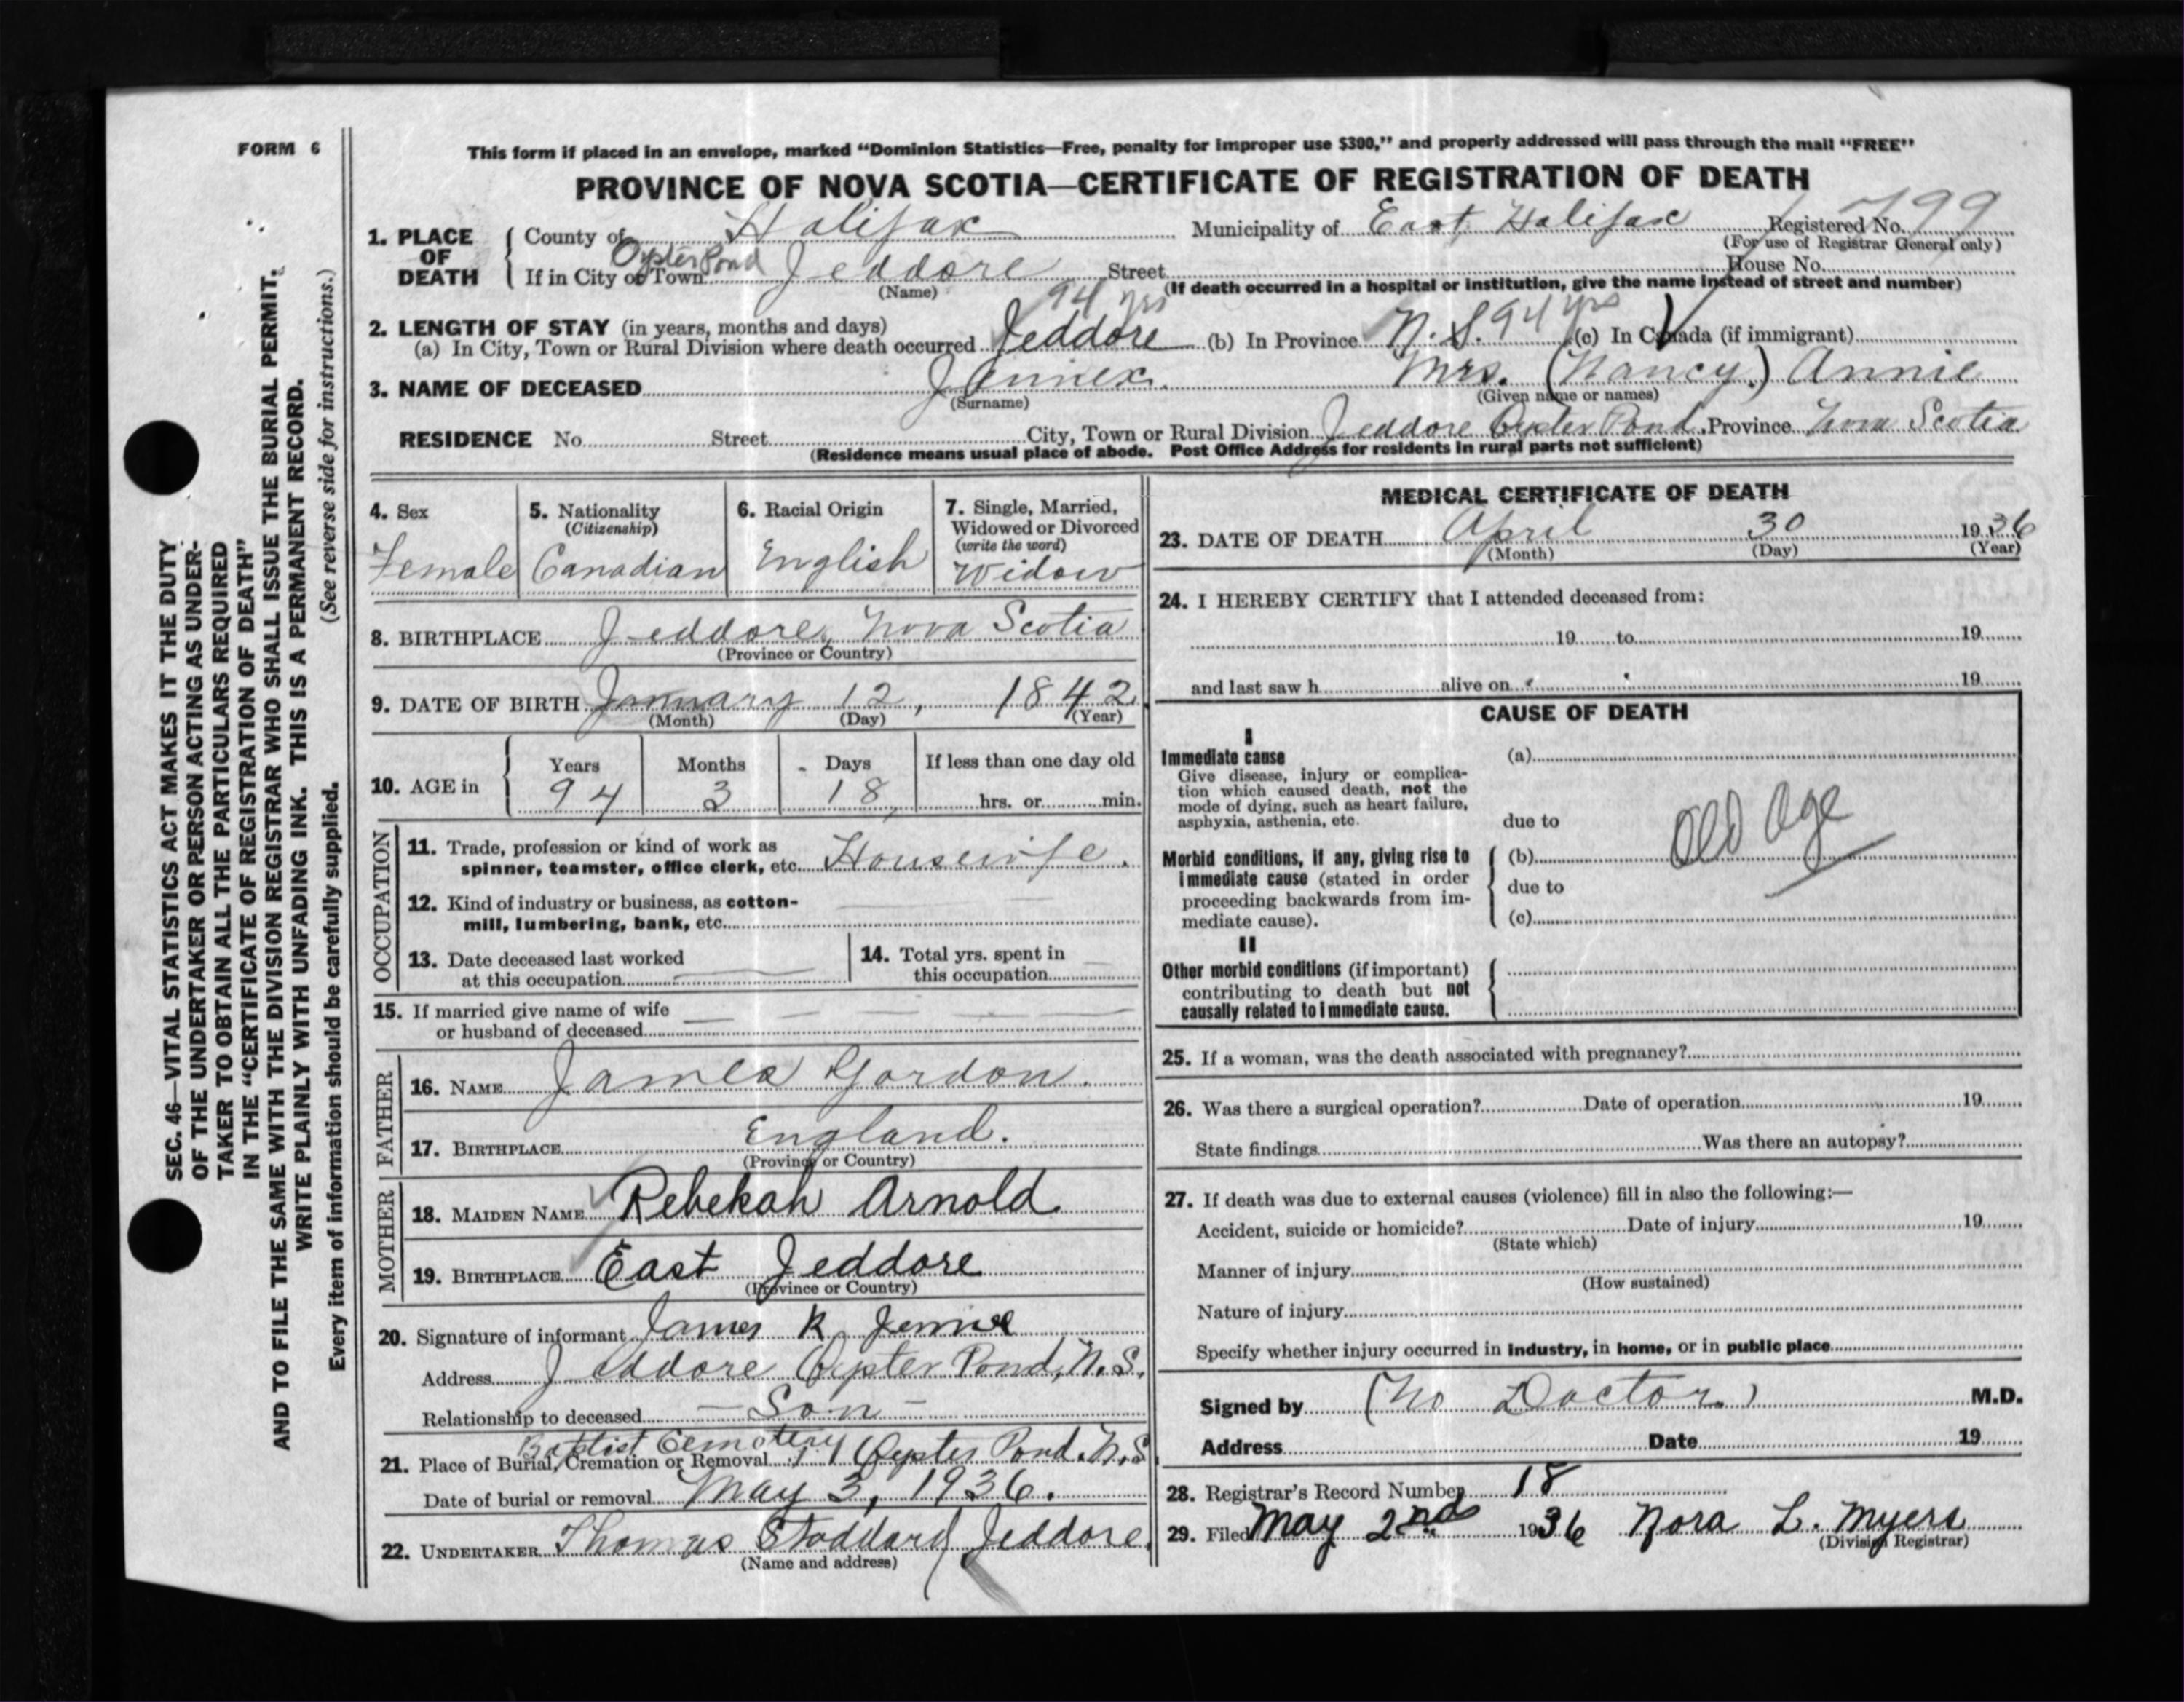 FORM 6
This form if placed in an envelope, marked "Dominion Statistics—Free, penalty for improper use $300," and properly addressed will pass through the mail "FREE"
PROVINCE OF NOVA SCOTIA—CERTIFICATE OF REGISTRATION OF DEATH
1. PLACE OF DEATH County of Halifax Municipality of East Halifax Registered No. 799
(For use of Registrar General only)
If in City or Town Oyster Pond Jeddore Street House No.
(Name) (If death occurred in a hospital or institution, give the name instead of street and number)
2. LENGTH OF STAY (in years, months and days)
(a) In City, Town or Rural Division where death occurred Jeddore 94 yrs (b) In Province N.S. 94 yrs (c) In Canada (if immigrant)
3. NAME OF DECEASED Jennex. Mrs. (Nancy.) Annie
(Surname) (Given name or names)
RESIDENCE No. Street City, Town or Rural Division Jeddore Oyster Pond. Province Nova Scotia
(Residence means usual place of abode. Post Office Address for residents in rural parts not sufficient)
4. Sex Female
5. Nationality (Citizenship) Canadian
6. Racial Origin English
7. Single, Married, Widowed or Divorced (write the word) Widow
8. BIRTHPLACE Jeddore, Nova Scotia
(Province or Country)
9. DATE OF BIRTH January 12, 1842
(Month) (Day) (Year)
10. AGE in Years 94 Months 3 Days 18 If less than one day old hrs. or min.
OCCUPATION
11. Trade, profession or kind of work as spinner, teamster, office clerk, etc. Housewife.
12. Kind of industry or business, as cotton-mill, lumbering, bank, etc.
13. Date deceased last worked at this occupation
14. Total yrs. spent in this occupation
15. If married give name of wife or husband of deceased
FATHER
16. NAME James Gordon.
17. BIRTHPLACE England.
(Province or Country)
MOTHER
18. MAIDEN NAME Rebekah Arnold
19. BIRTHPLACE East Jeddore
(Province or Country)
20. Signature of informant James K
Address Jeddore Oyster Pond, N.S.
Relationship to deceased - Son -
21. Place of Burial, Cremation or Removal Baptist Cemetery Oyster Pond. N.S
Date of burial or removal May 3, 1936.
22. UNDERTAKER Thomas Stoddard Jeddore.
(Name and address)
MEDICAL CERTIFICATE OF DEATH
23. DATE OF DEATH April 30 1936
(Month) (Day) (Year)
24. I HEREBY CERTIFY that I attended deceased from:
19 to 19
and last saw h alive on 19
CAUSE OF DEATH
I
Immediate cause (a)
Give disease, injury or complica-
tion which caused death, not the
mode of dying, such as heart failure,
asphyxia, asthenia, etc. due to
Old Age
Morbid conditions, if any, giving rise to (b)
immediate cause (stated in order due to
proceeding backwards from im-
mediate cause). (c)
II
Other morbid conditions (if important)
contributing to death but not
causally related to immediate cause.
25. If a woman, was the death associated with pregnancy?
26. Was there a surgical operation? Date of operation 19
State findings Was there an autopsy?
27. If death was due to external causes (violence) fill in also the following:—
Accident, suicide or homicide? Date of injury 19
(State which)
Manner of injury
(How sustained)
Nature of injury
Specify whether injury occurred in industry, in home, or in public place
Signed by (No Doctor.) M.D.
Address Date 19
28. Registrar's Record Number 18
29. Filed May 2nd 1936 Nora L. Myers
(Division Registrar)
SEC. 46—VITAL STATISTICS ACT MAKES IT THE DUTY
OF THE UNDERTAKER OR PERSON ACTING AS UNDER-
TAKER TO OBTAIN ALL THE PARTICULARS REQUIRED
IN THE "CERTIFICATE OF REGISTRATION OF DEATH"
AND TO FILE THE SAME WITH THE DIVISION REGISTRAR WHO SHALL ISSUE THE BURIAL PERMIT.
WRITE PLAINLY WITH UNFADING INK. THIS IS A PERMANENT RECORD.
Every item of information should be carefully supplied. (See reverse side for instructions.)